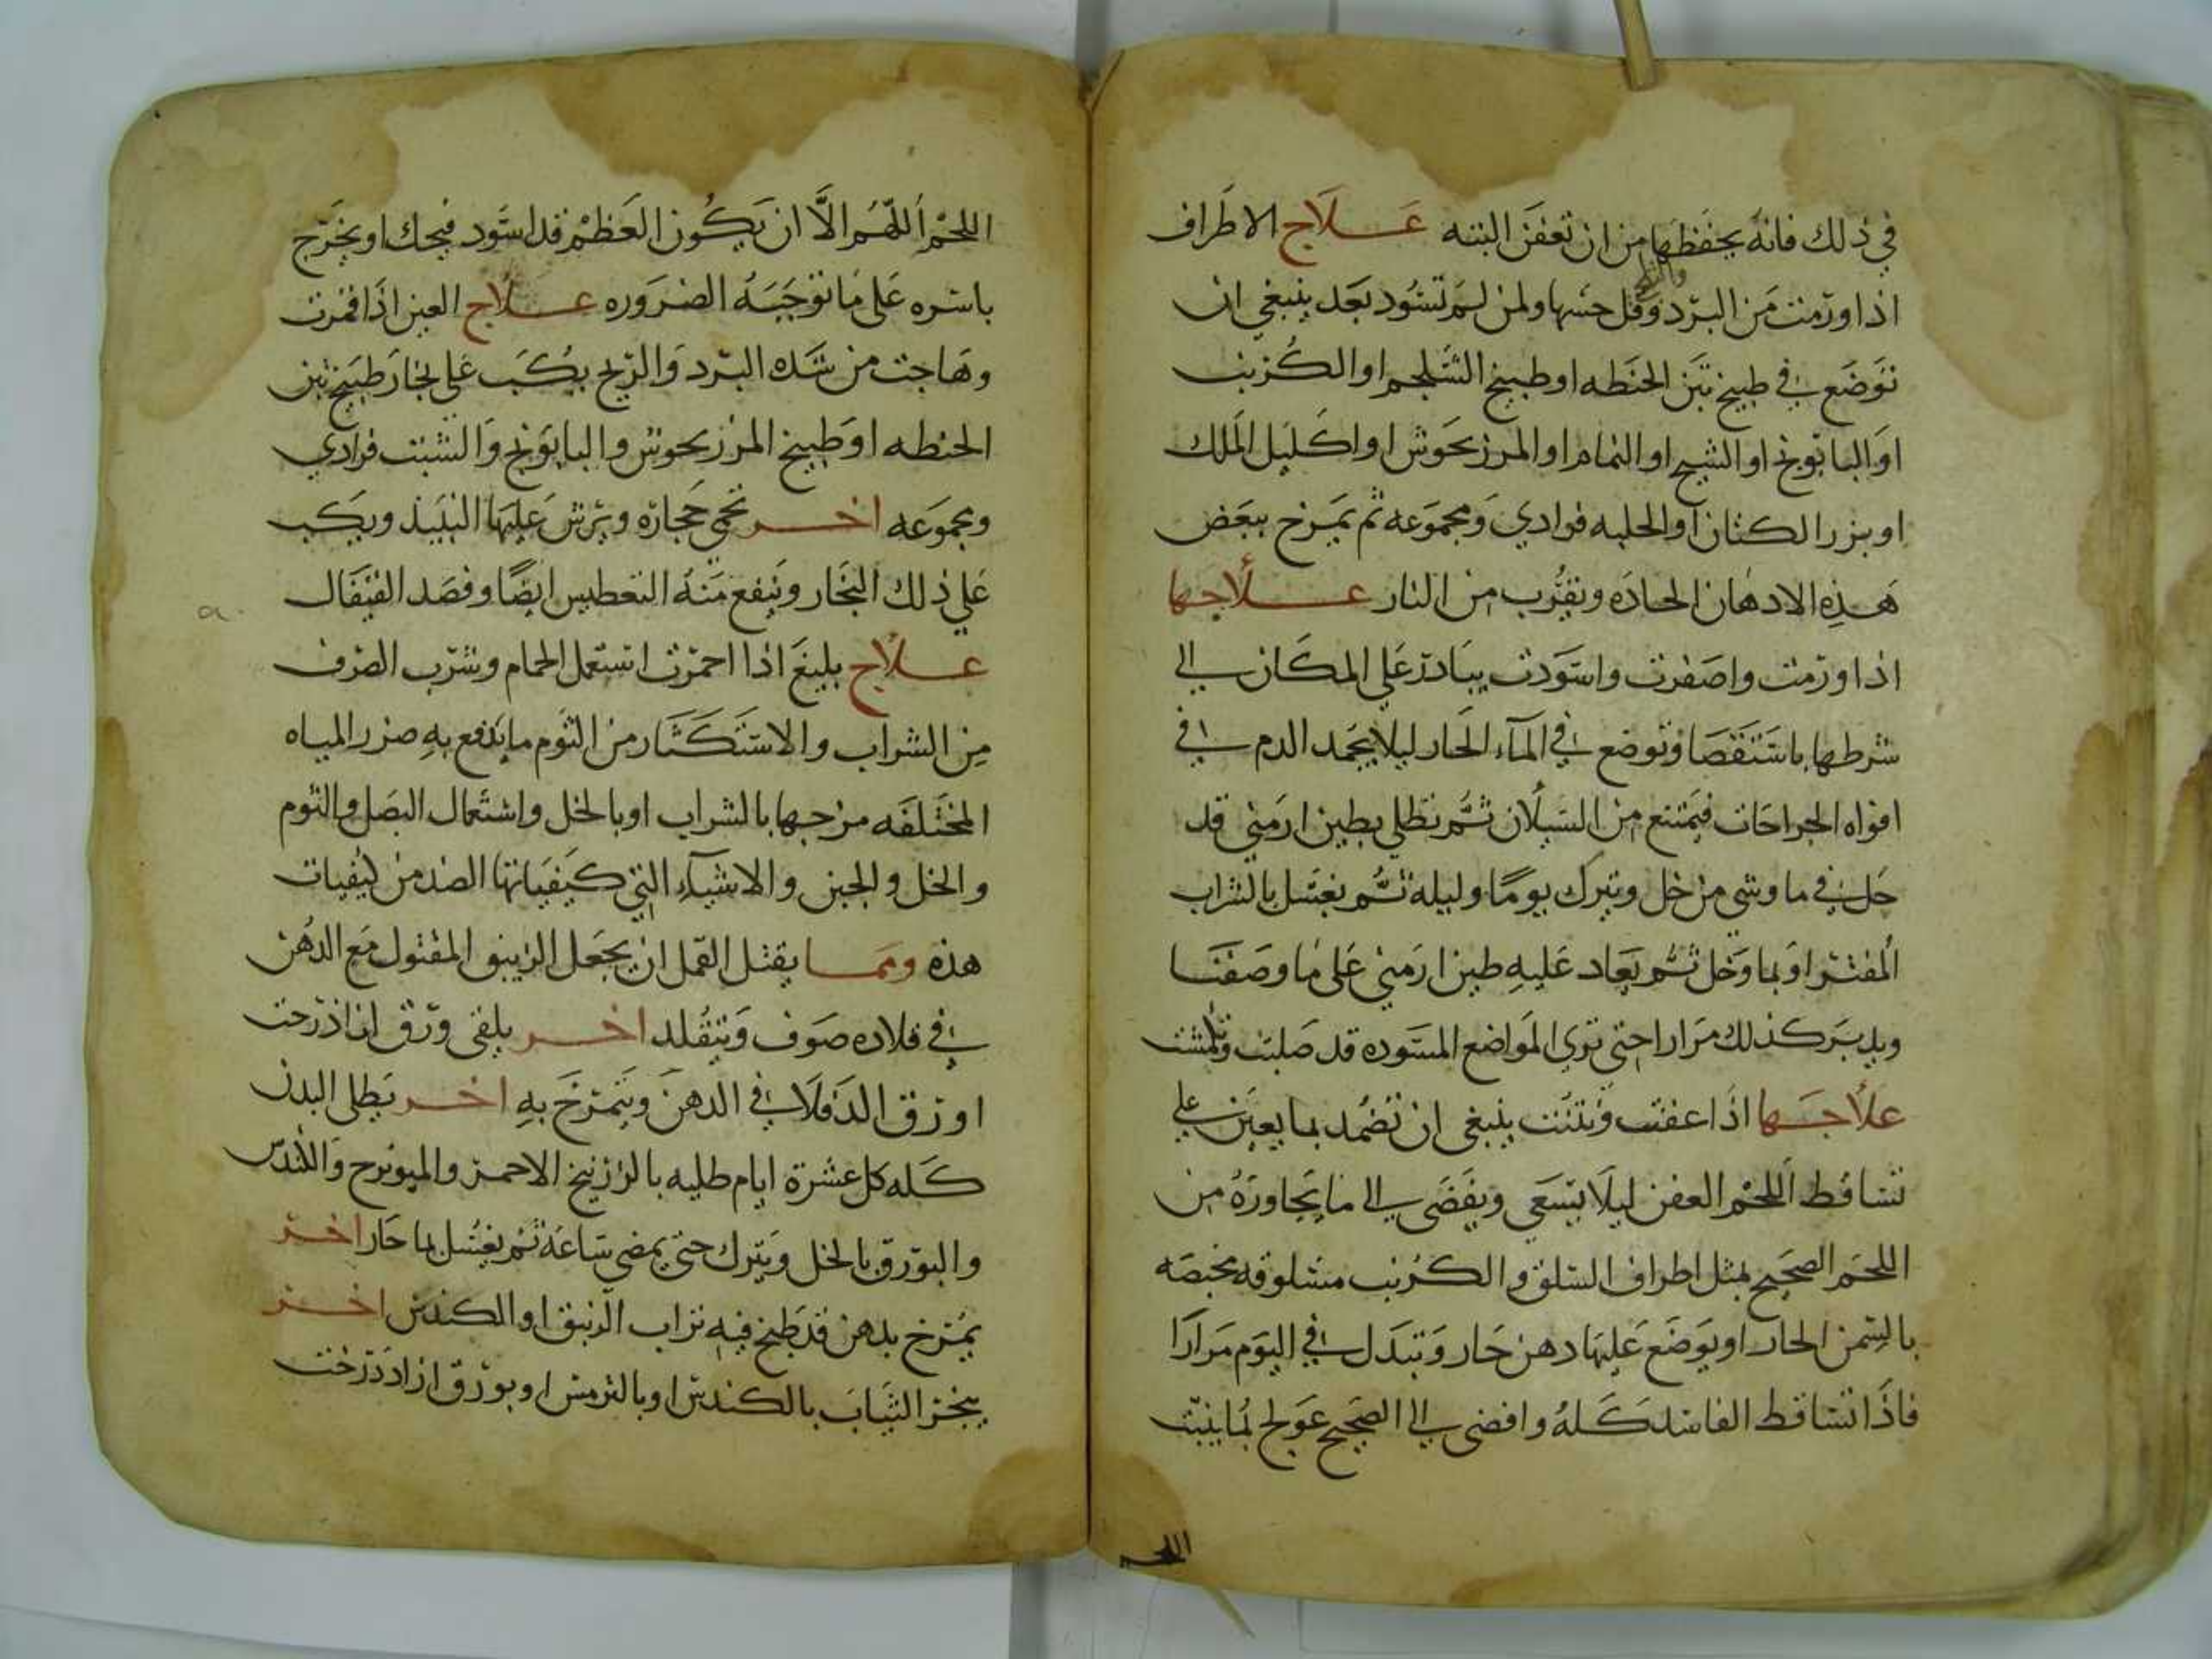 في ذلك فانه يحفظها من ان تعفن البته علاج الاطراف
اذا ورمت من البرد وقل حسها ولمن لم تسود بعد ينبغي ان
توضع في طبيخ تبن الحنطه او طبيخ الشلجم او الكرنب
او البابونج او الشيح او النمام او المرزنحوش او اكليل الملك
او بزر الكتان او الحلبه فرادي ومجموعه ثم يمرخ ببعض
هذه الادهان الحاده وتقرب من النار علاجها
اذا ورمت واصفرت واسودت يبادر على المكان الى
شرطها باستقصا وتوضع في المآء الحار ليلا يجمد الدم في
افواه الجراحات فيمتنع من السيلان ثم تطلي بطين ارمني قد
حل في ما وشي من خل ويترك يوما وليله ثم يغسل بالشراب
المفتر او بما وخل ثم يعاد عليه طين ارمني على ما وصفنا
ويدبر كذلك مرارا حتى تري المواضع المسوده قد صلبت
علاجها اذا عفنت ونتنت ينبغي ان تضمد بما يعين على
تساقط اللحم العفن ليلا يسعي ويفضي الى ما يجاوره من
اللحم الصحيح بمثل اطراف السلق والكرنب مسلوقه مخبصه
بالسمن الحار او يوضع عليها دهن حار وتبدل في اليوم مرارا
فاذا تساقط الفاسد كله وافضى الى الصحيح عولج بما ينبت
اللحم
اللحم اللهم الا ان يكون العظم قد اسود فيحك او يخرج
باسره على ما توجبه الضروره علاج العين اذا قمرت
وهاجت من شده البرد والريح يكب على بخار طبيخ تبن
الحنطه او طبيخ المرزنحوش والبابونج والشبت فرادي
ومجموعه اخر تحمي حجاره ويرش عليها النبيذ ويكب
على ذلك البخار وينفع منه التعطيس ايضا وفصد القيفال
علاج بليغ اذا احمرت استعمل الحمام وشرب الصرف
من الشراب والاستكثار من الثوم ما يدفع به ضرر المياه
المختلفه مزجها بالشراب او بالخل واستعمال البصل والثوم
والخل والجبن والاشيآء التي كيفياتها الضد من كيفيات
هذه ومما يقتل القمل ان يجعل الزيبق المقتول مع الدهن
في قلاده صوف ويتقلد اخر يلقى ورق ازاذرخت
او ورق الدفلا في الدهن ويتمرخ به اخر يطلى البدن
كله كل عشرة ايام طليه بالزرنيخ الاحمر والميويزج والكندس
والبورق بالخل ويترك حتى يمضي ساعة ثم يغسل بما حار اخر
يمرخ بدهن قد طبخ فيه تراب الزيبق او الكندس اخر
يبخر الثياب بالكندس او بالترمس او بورق ازاددرخت